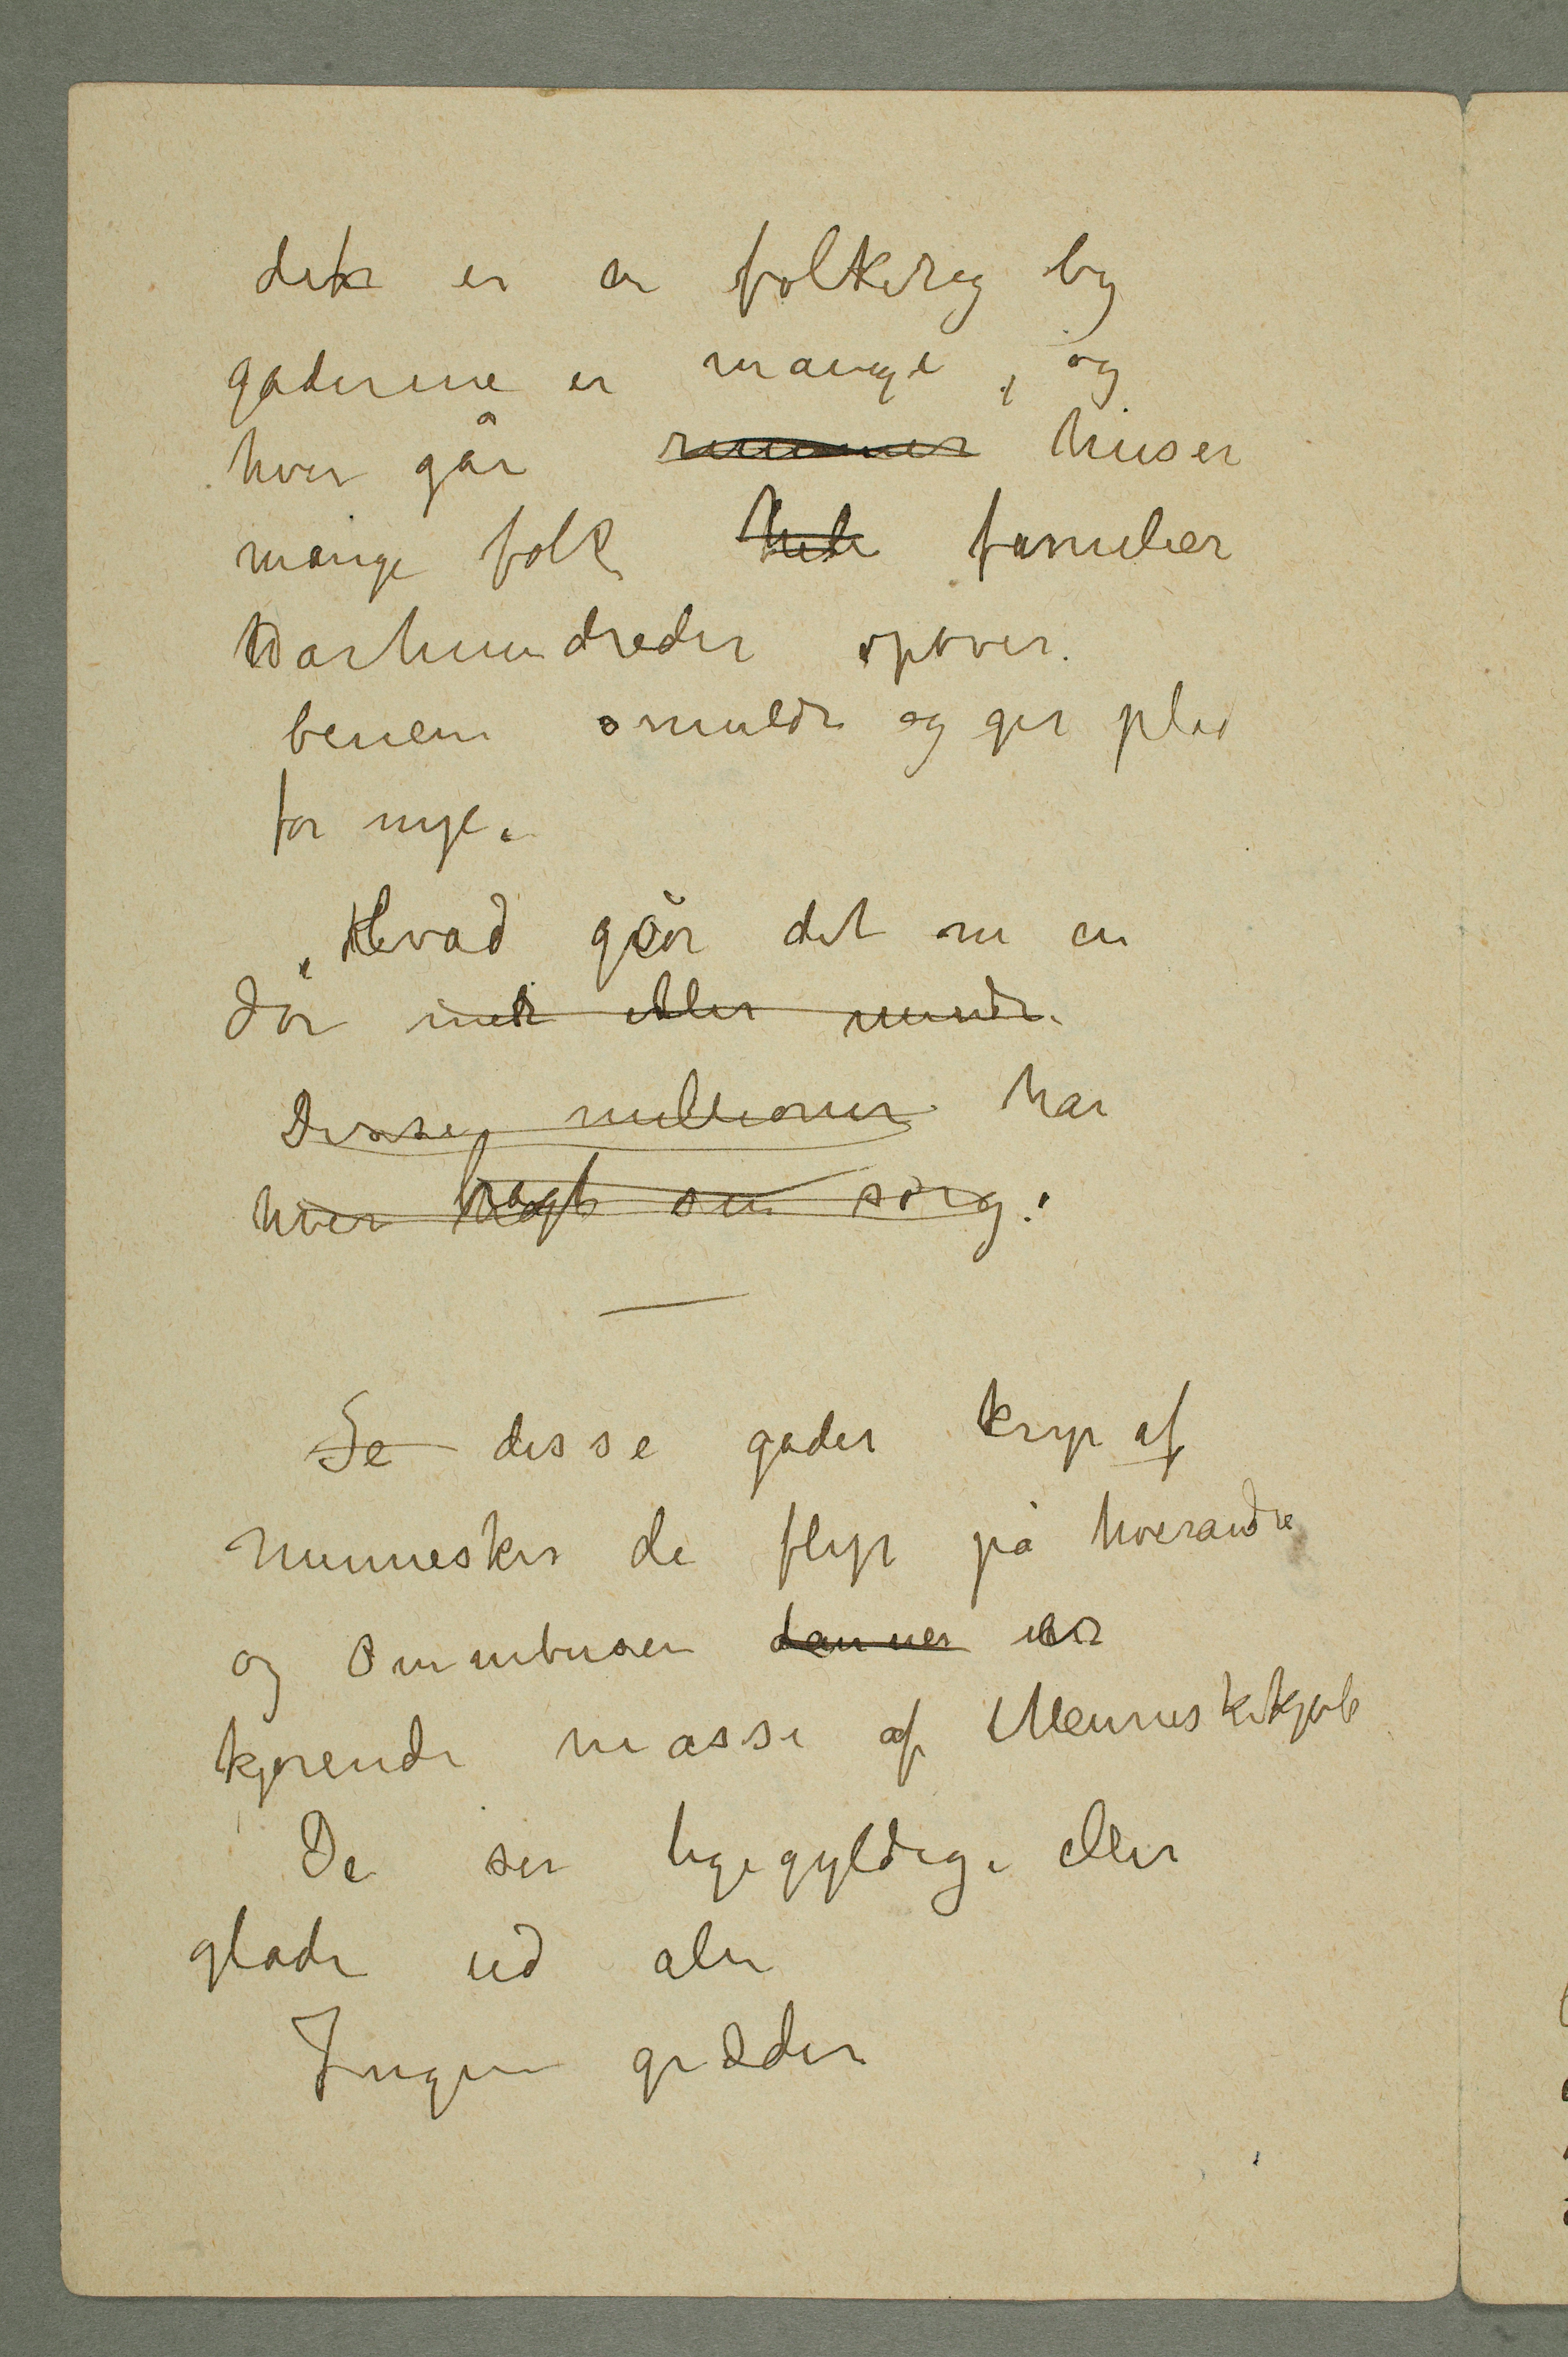 det er en folkerig by
gaderne er mange, og
hver går rummer huser
mange folk hele familier
aarhundreder opover.
benene smuldre og ger plad
for nye.
„Hvad gør det om en
dør mer eller mindre.
Disse millioner har
hver bragt sin sorg.
—
Se disse gader kryr af
Mennesker de flyr på hverandre
og Omnibusen danner er
kjørende masse af Menneskekjøt
De ser ligegyldige eller
glade ud alle
Ingen græder